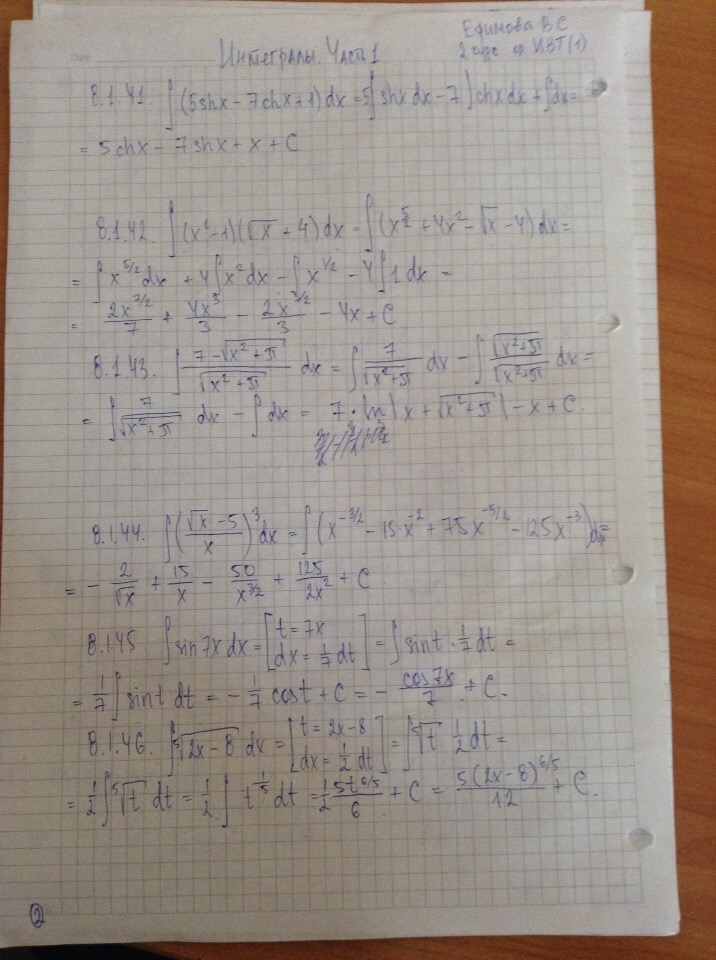 Интегралы. Часть 1
Единова В.С
2 курс ИВТ(1)
8.1.41. ∫(5shx − 7chx + 1)dx = 5∫shx dx − 7∫chx dx + ∫dx =
= 5chx − 7shx + x + C
8.1.42. ∫(x² − 1)(√x + 4)dx = ∫(x^(5/2) + 4x² − √x − 4)dx =
= ∫x^(5/2) dx + 4∫x² dx − ∫x^(1/2) − 4∫1 dx =
= 2x^(7/2)/7 + 4x³/3 − 2x^(3/2)/3 − 4x + C
8.1.43. ∫ (7 − √(x² + π))/√(x² + π) dx = ∫ 7/√(x² + π) dx − ∫ √(x² + π)/√(x² + π) dx =
= ∫ 7/√(x² + π) dx − ∫dx = 7 · ln|x + √(x² + π)| − x + C
8.1.44. ∫((√x − 5)/x)³ dx = ∫(x^(−3/2) − 15·x^(−2) + 75x^(−5/2) − 125x^(−3))dx =
= − 2/√x + 15/x − 50/x^(3/2) + 125/2x² + C
8.1.45 ∫sin7x dx = [t = 7x dx = 1/7 dt] = ∫sint · 1/7 dt =
= 1/7 ∫sint dt = − 1/7 cost + C = − cos7x/7 + C.
8.1.46. ∫⁵√(2x − 8) dx = [t = 2x − 8 dx = 1/2 dt] = ∫⁵√t 1/2 dt =
= 1/2 ∫⁵√t dt = 1/2 ∫ t^(1/5) dt = 1/2 5t^(6/5)/6 + C = 5(2x − 8)^(6/5)/12 + C.
2